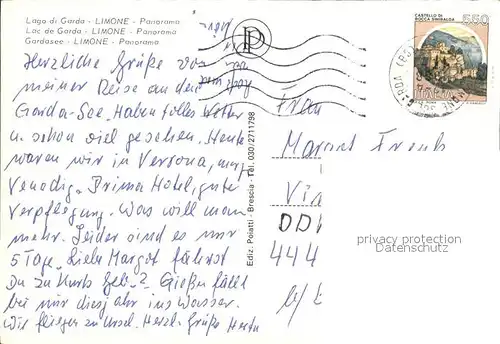 Lago di Garda - LIMONE - Panorama
Lac de Garda - LIMONE - Panorama
Gardasee - LIMONE - Panorama
Herzliche Grüße von
meiner Reise an den
Garda-See. Haben tolles Wetter
u. schon viel gesehen. Heute
waren wir in Verona, morg.
Venedig. Prima Hotel, gute
Verpflegung. Was will man
mehr. Leider sind es nur
5 Tage. Liebe Margot fährst
Du zu Kurts Geb.? Gießen fällt
bei mir dies Jahr ins Wasser.
Wir fliegen zu Ursel. Herzl. Grüße Herta
Ediz. Poiatti - Brescia - Tel. 030/2711798
P
CASTELLO DI
ROCCA SINIBALDA
550
Frau
Margot
DD
444
privacy protection
Datenschutz